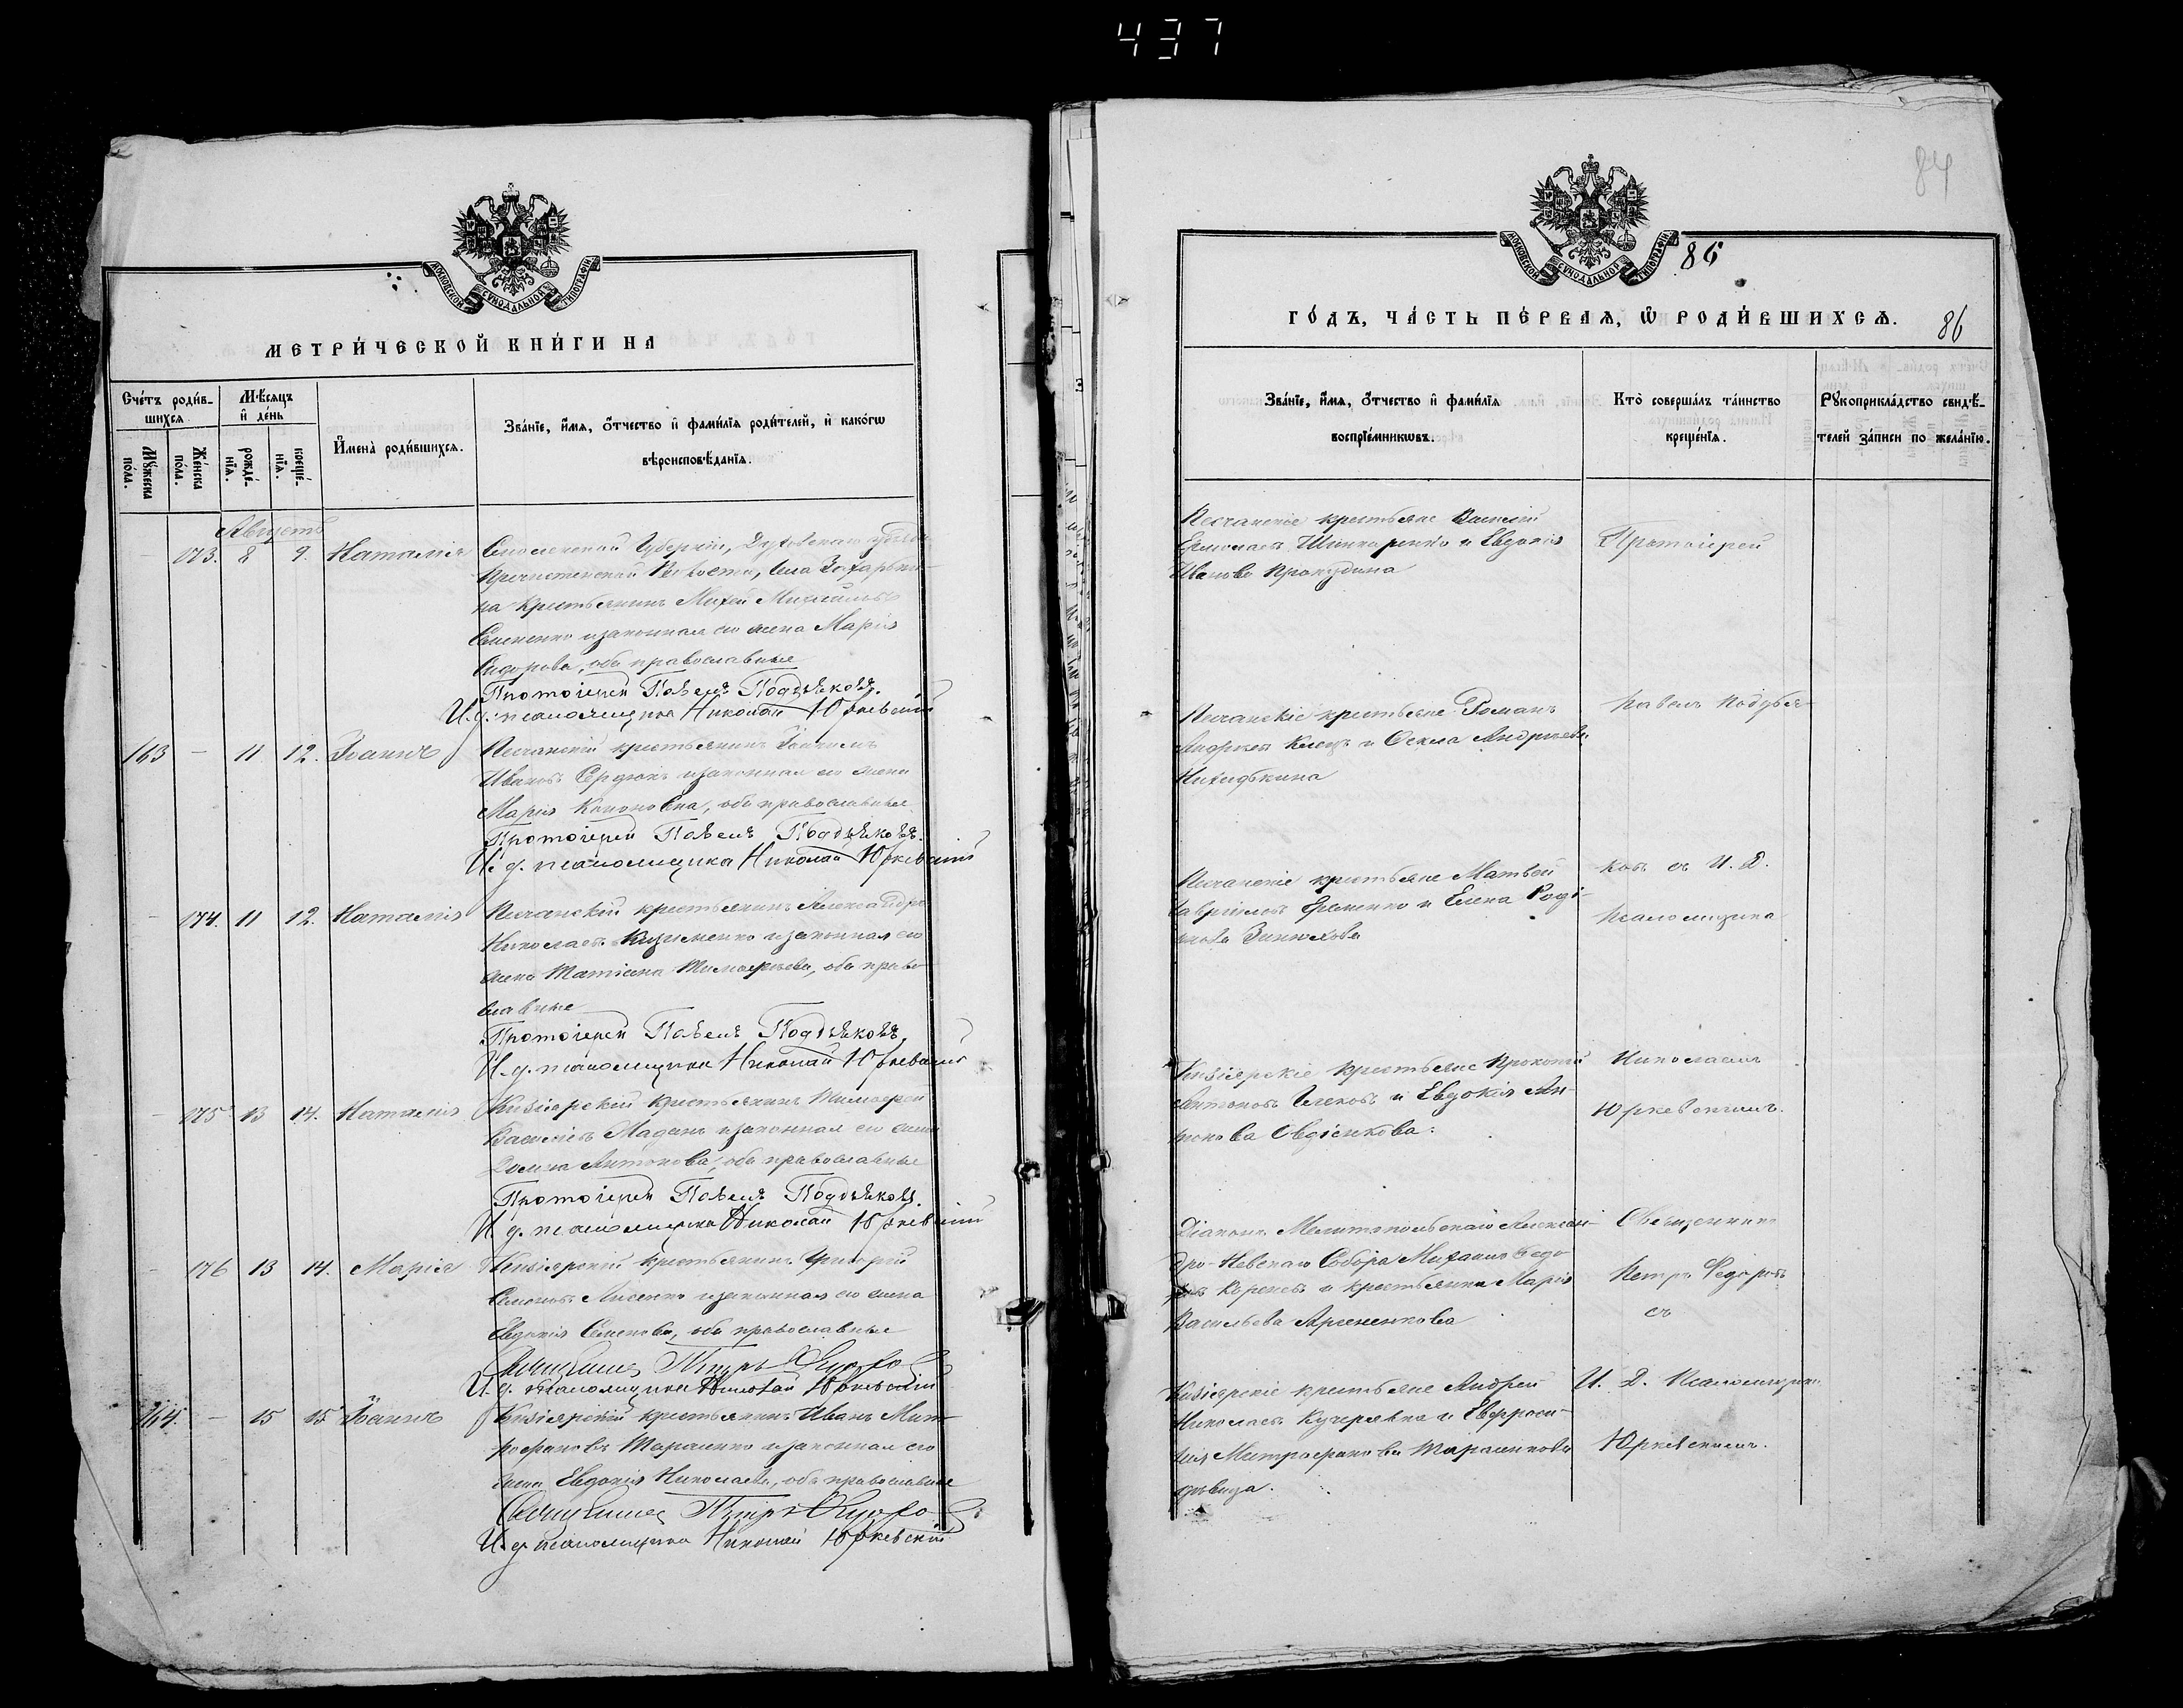 437
84
МОСКОВСКОЙ СѴНОДАЛЬНОЙ ТИПОГРАФІИ
МЕТРИ́ЧЕСКОЙ КНИ́ГИ НА
Сче́тъ роди́в-
шихсѧ
Мѣ́сяцъ
и҆ де́нь
Мꙋ́жеска
по́ла.
Же́нска
по́ла.
рожде́-
нїѧ.
креще́-
нїѧ.
И҆мена̀ роди́вшихсѧ.
Зва́нїе, и҆́мѧ, ѻ҆́тчество и҆ фами́лїѧ роди́телей, и҆ како́гѡ
вѣроисповѣ́данїѧ.
Августъ
173. 8 9. Наталія
Смоленской Губерніи, Духовскаго уѣзда
Пречистенской Волости, села
крестьянинъ Михаиловъ
и законная его жена Марія
Сидорова, оба православные
Протоіерей Павелъ Поддьяковъ.
И. д. псаломщика Николай Юркевскій
163 — 11 12. Іоаннъ
Песчанскій крестьянинъ
Ивановъ Сердюкъ и законная его жена
Марія Кононовна, оба православные
Протоіерей Павелъ Поддьяковъ.
И. д. псаломщика Николай Юркевскій
— 174. 11 12. Наталія
Песчанскій крестьянинъ Александръ
Николаевъ и законная его
жена Татіана Тимофеева, оба право-
славные
Протоіерей Павелъ Поддьяковъ.
И. д. псаломщика Николай Юркевскій
— 175 13 14. Наталія
Кизіярскій крестьянинъ Тимофей
Васильевъ и законная его жена
Домна Антонова, оба православные
Протоіерей Павелъ Поддьяковъ.
И. д. псаломщика Николай Юркевскій
— 176 13 14. Марія
Кизіярскій крестьянинъ Григорій
Семеновъ Лисенко и законная его жена
Евдокія Семенова, оба православные
Священникъ Петръ
И. д. псаломщика Николай Юркевскій
164. — 15 15 Іоаннъ
Кизіярскій крестьянинъ Иванъ Мит-
рофановъ Тарасенко и законная его
жена Евдокія Николаева, оба православные
Священникъ Петръ
И. д. псаломщика Николай Юркевскій
МОСКОВСКОЙ СѴНОДАЛЬНОЙ ТИПОГРАФІИ
86
ГО́ДЪ, ЧА́СТЬ ПЕ́РВАѦ, Ѡ҆ РОДИ́ВШИХСѦ.
86
Зва́нїе, и҆́мѧ, ѻ҆́тчество и҆ фами́лїѧ
воспрїе́мникѡвъ.
Кто̀ соверша́лъ та́инство
креще́нїѧ.
Рꙋкоприкла́дство свидѣ́-
телей за́писи по жела́нїю.
Песчанскіе крестьяне Василій
Ермолаевъ Шинкаренко и Евдокія
Иванова Прокудина
Протоіерей
Песчанскіе крестьяне Романъ
Андреевъ и Ѳекла Андреева
Павелъ Поддья-
Песчанскіе крестьяне Матвей
Гавріиловъ Еременко и Елена Роді-
онова
ковъ съ И. Д.
псаломщика
Кизіярскіе крестьяне Прокопій
Антоновъ и Евдокія Ан-
тонова Овдіенкова.
Николаемъ
Юркевскимъ.
Діаконъ Мелитопольскаго Алексан-
дро-Невскаго Собора Михаилъ Ѳедо-
ровъ и крестьянка Марія
Васильева
Священникъ
Петръ Федоровъ
съ
Кизіярскіе крестьяне Андрей
Николаевъ Кучерявка и Евфроси-
нія Митрофанова Тарасенкова
дѣвица.
И. Д. Псаломщика
Юркевскимъ.